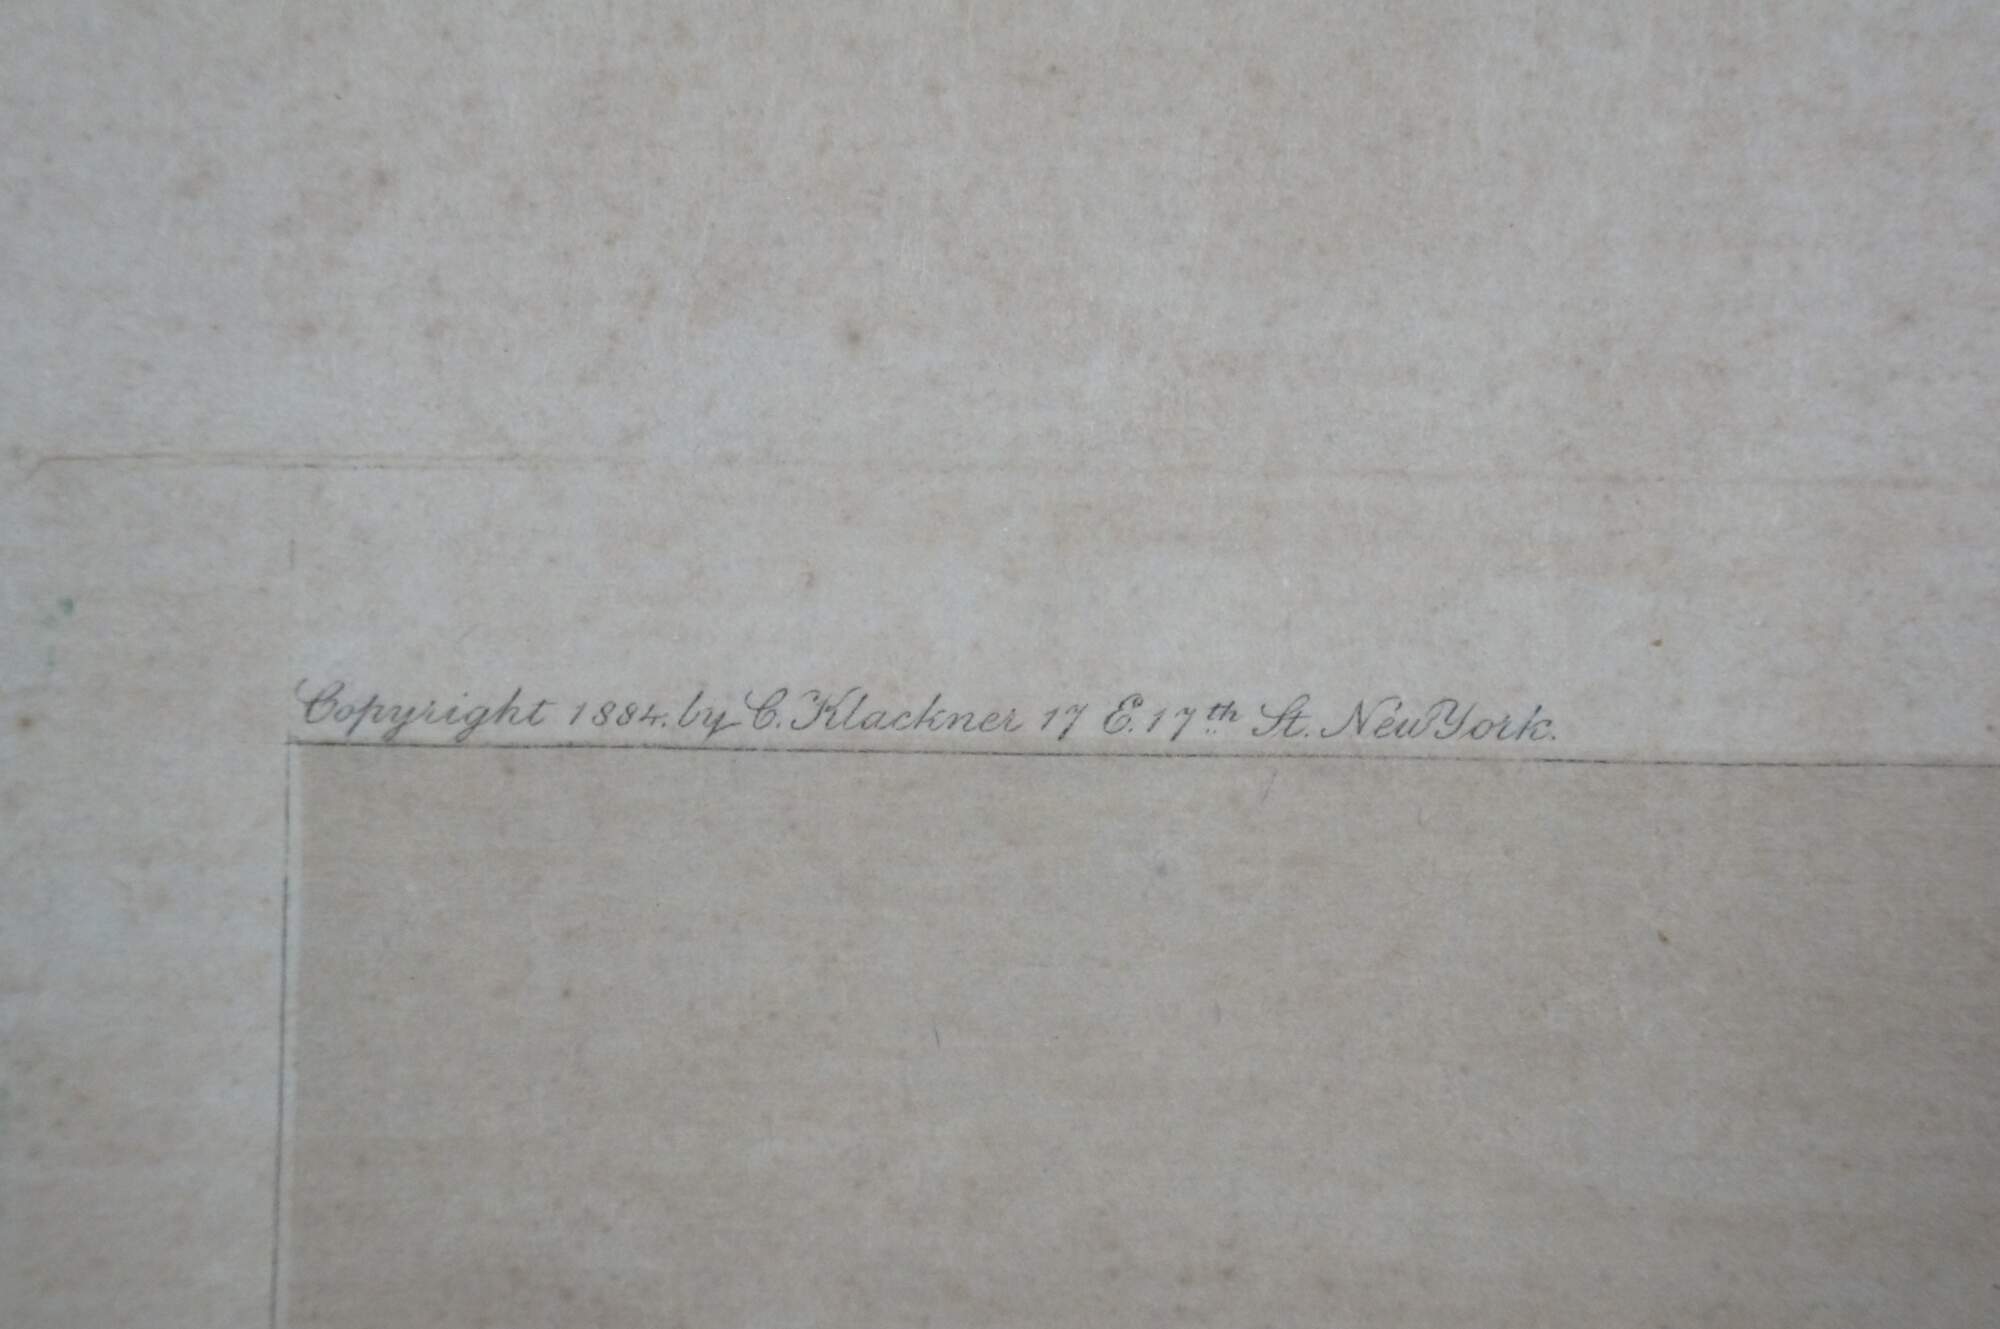 Copyright 1884. by C. Klackner 17 E. 17th St. New York.